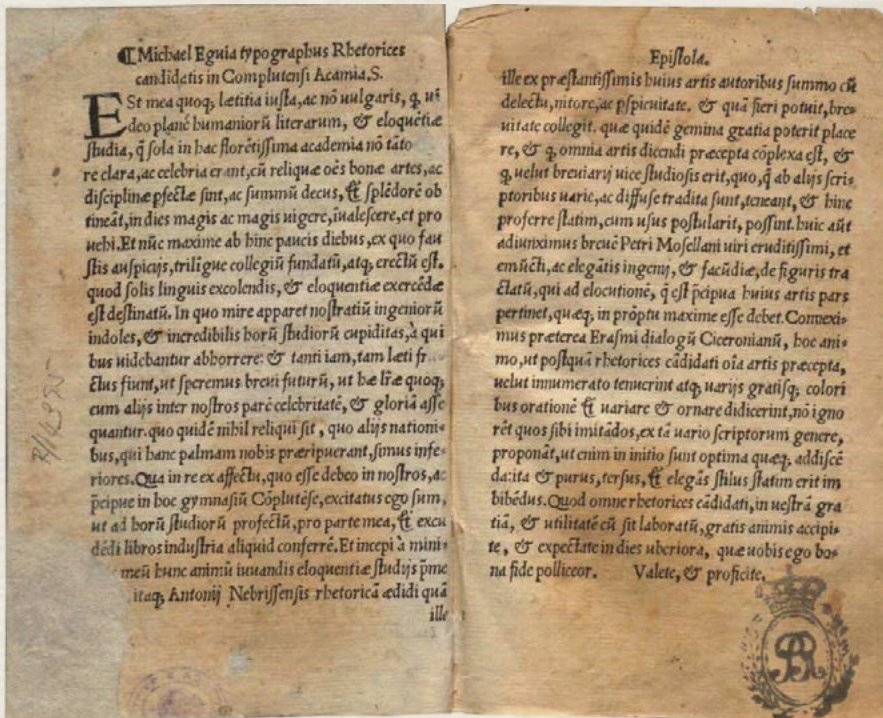 ☙ Michael Eguia typographus Rhetorices
candidatis in Complutensi Acamia. S.
ESt mea quoq; lætitia iusta, ac nõ uulgaris, q, ui
deo planè humaniorũ literarum, & eloquẽtiæ
studia, q̃ sola in hac florẽtissima academia nõ tãto
re clara, ac celebria erant, cũ reliquæ oẽs bonæ artes, ac
disciplinæ pfectæ sint, ac summũ decus, & splẽdorẽ ob
tineãt, in dies magis ac magis uigere, iualescere, et pro
uehi. Et nũc maxime ab hinc paucis diebus, ex quo fau
stis auspicijs, trilĩgue collegiũ fundatũ, atq; erectũ est.
quod solis linguis excolendis, & eloquentiæ exercẽdæ
est destinatũ. In quo mire apparet nostratiũ ingeniorũ
indoles, & incredibilis horũ studiorũ cupiditas, à qui
bus uidebantur abhorrere: & tanti iam, tam læti fr
ctus fiunt, ut speremus breui futurũ, ut hæ lr̃æ quoq;
cum alijs inter nostros parẽ celebritatẽ, & gloriã asse
quantur. quo quidẽ nihil reliqui sit, quo alijs nationi-
bus, qui hanc palmam nobis præripuerant, simus infe-
riores. Qua in re ex affectu, quo esse debeo in nostros, ac
p̃cipue in hoc gymnasiũ Cõplutẽse, excitatus ego sum,
ut ad horũ studiorũ profectũ, pro parte mea, & excu
dẽdi libros industria aliquid conferrẽ. Et incepi à mini-
meũ hunc animũ iuuandis eloquentiæ studijs p̃me
itaq; Antonij Nebrissensis rhetoricã ædidi quã
ille
Epistola.
ille ex præstantissimis huius artis autoribus summo cũ
delectu, nitore, ac pspicuitate. & quã fieri potuit, bre-
uitate collegit. quæ quidẽ gemina gratia poterit place
re, & q, omnia artis dicendi præcepta cõplexa est, &
q, uelut breuiarij uice studiosis erit, quo, q̃ ab alijs scri-
ptoribus varie, ac diffuse tradita sunt, teneant, & hinc
proferre statim, cum usus postularit, possint. huic aũt
adiunximus breuẽ Petri Mosellani uiri eruditissimi, et
emũcti, ac elegãtis ingenij, & facũdiæ, de figuris tra
ctatũ, qui ad elocutionẽ, q̃ est p̃cipua huius artis pars
pertinet, quæq; in prõptu maxime esse debet. Conuexi-
mus præterea Erasmi dialogũ Ciceronianũ, hoc ani-
mo, ut postquã rhetorices cãdidati oĩa artis præcepta,
uelut innumerato tenuerint atq; uarijs gratisq; colori
bus orationẽ & uariare & ornare didicerint, nõ igno
rẽt quos sibi imitãdos, ex tã uario scriptorum genere,
proponãt, ut enim in initio sunt optima quæq; addiscẽ
da: ita & purus, tersus, & elegãs stilus statim erit im
bibẽdus. Quod omne rhetorices cãdidati, in uestrã gra
tiã, & utilitatẽ cũ sit laboratũ, gratis animis accipi-
te, & expectate in dies uberiora, quæ uobis ego bo-
na fide polliceor. Valete, & proficite.